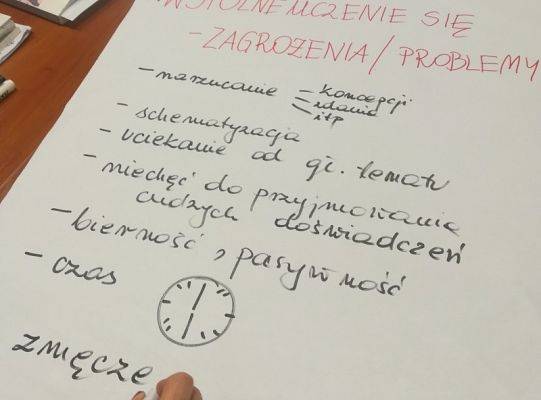 WSPÓLNE UCZENIE SIĘ
- ZAGROŻENIA / PROBLEMY
- narzucanie - koncepcji
zdania
itp
- schematyzacja
- uciekanie od gł. tematu
- niechęć do przyjmowania
cudzych doświadczeń
- bierność, pasywność
- czas
zmęcze